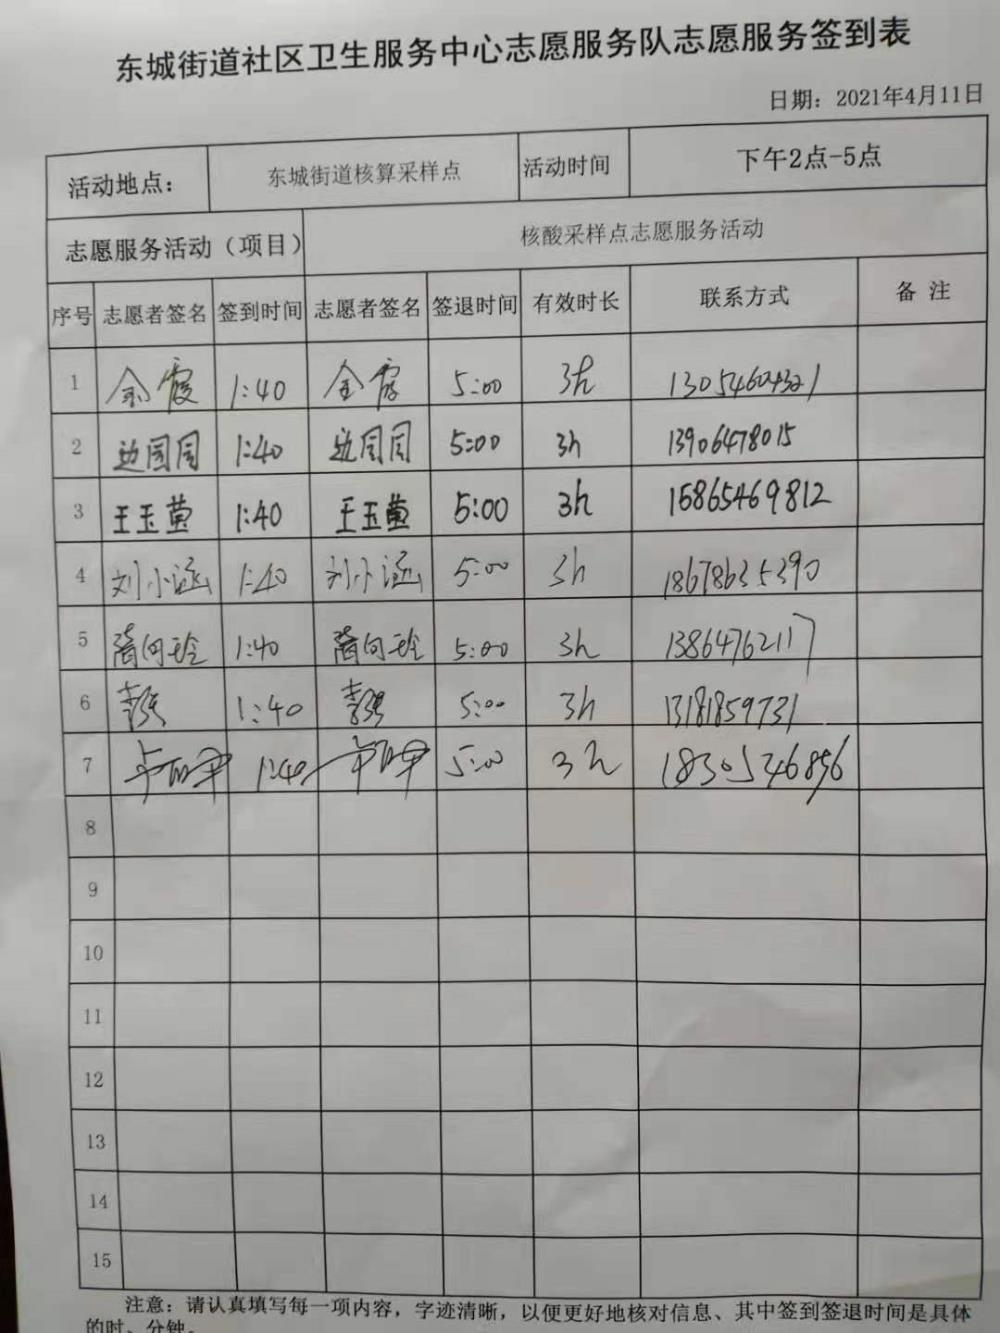 东城街道社区卫生服务中心志愿服务队志愿服务签到表
日期：2021年4月11日
活动地点： 东城街道核算采样点 活动时间 下午2点-5点
志愿服务活动（项目） 核酸采样点志愿服务活动
序号 志愿者签名 签到时间 志愿者签名 签退时间 有效时长 联系方式 备 注
1 金霞 1:40 金霞 5:00 3h
2 边园园 1:40 边园园 5:00 3h 13906478015
3 王玉萤 1:40 王玉萤 5:00 3h 15865469812
4 刘小涵 1:40 刘小涵 5:00 3h 18678635390
5 1:40 5:00 3h 13864762117
6 1:40 5:00 3h 13181859731
7 1:40 5:00 3h 18305246896
8
9
10
11
12
13
14
15
注意：请认真填写每一项内容，字迹清晰，以便更好地核对信息、其中签到签退时间是具体
的时、分钟。